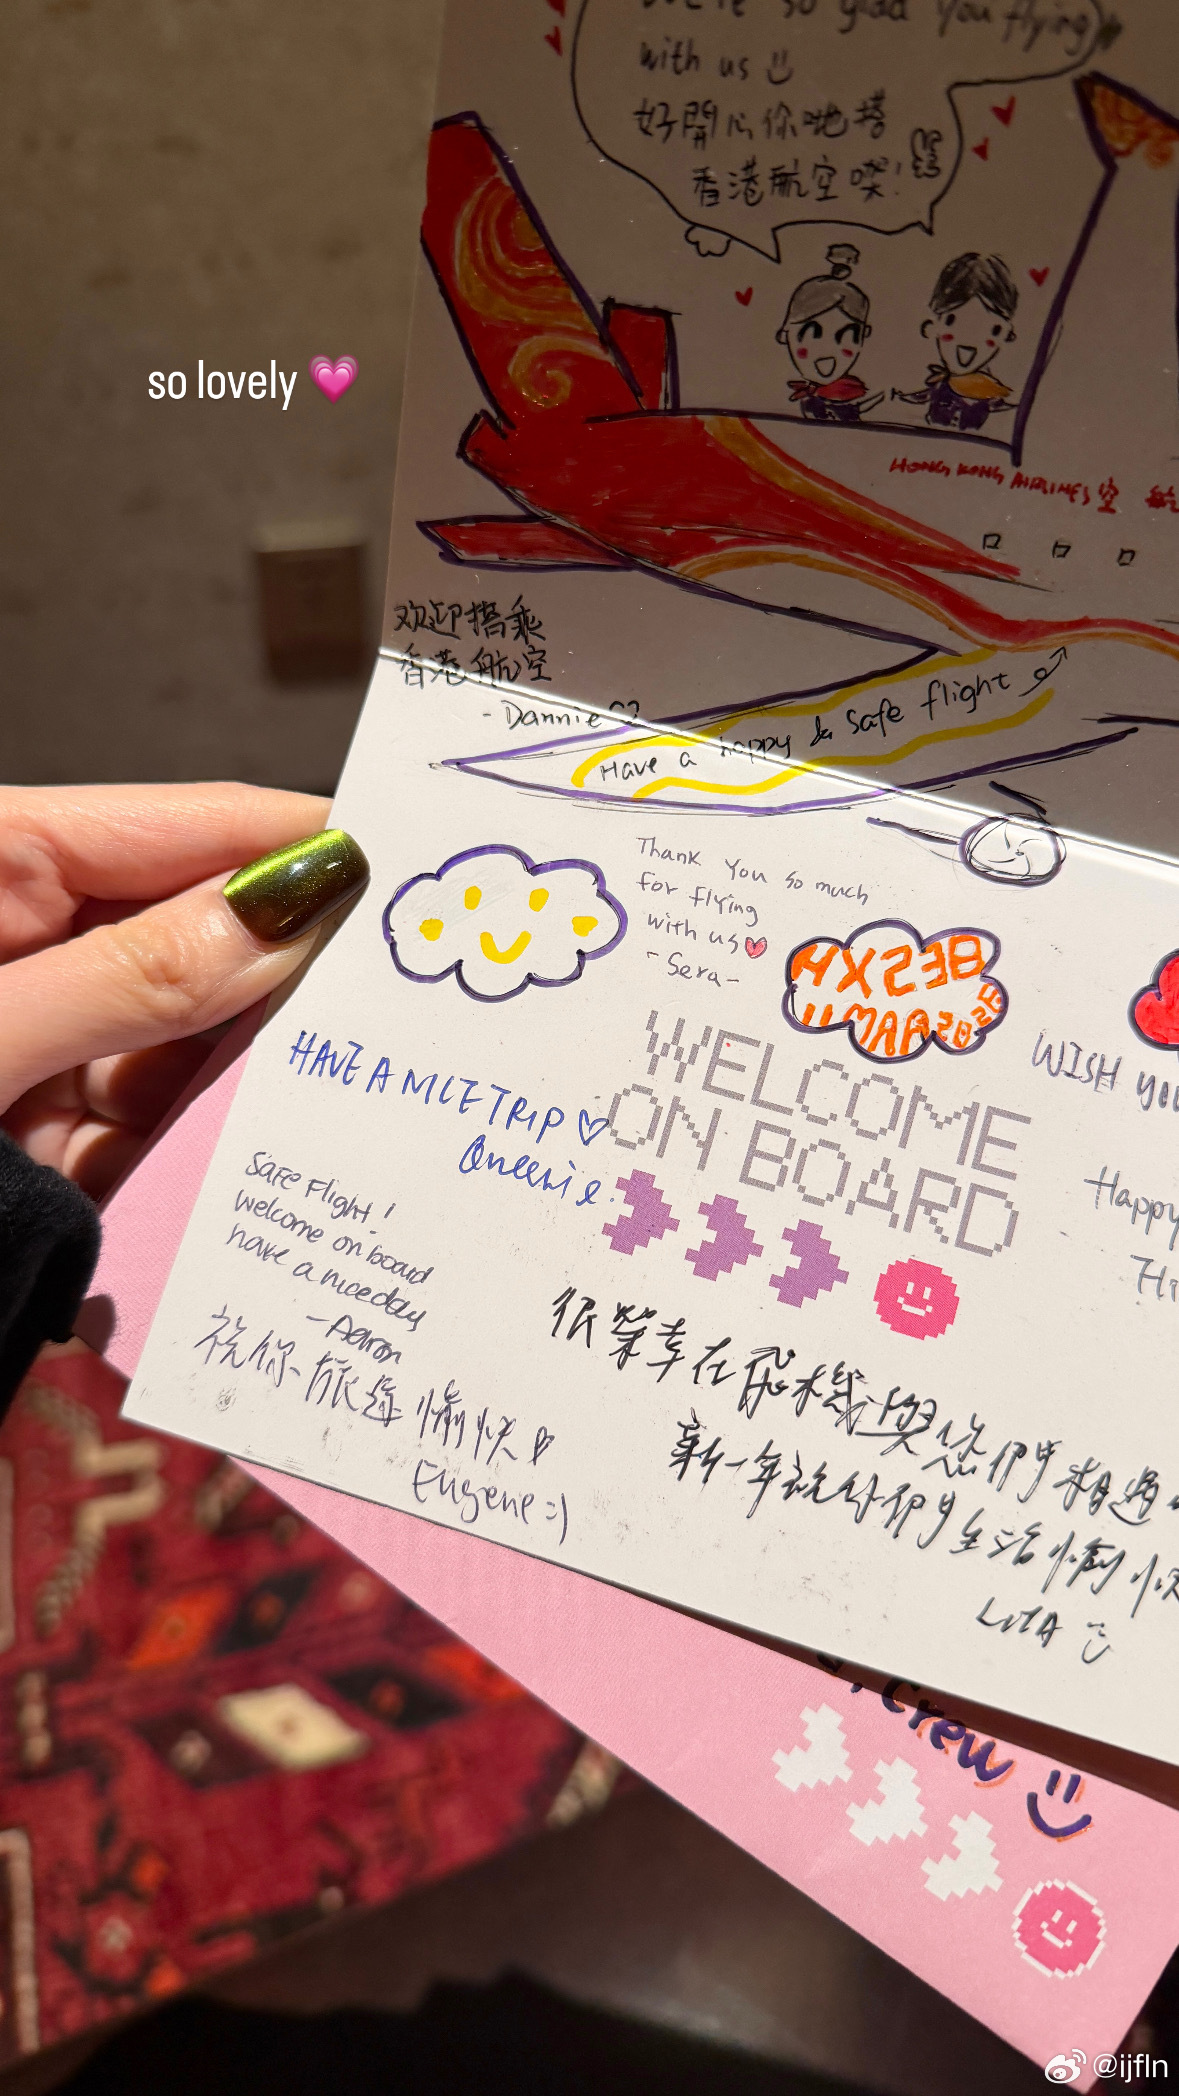 We're so glad you flying
with us
好開心你哋搭
香港航空㗎!
so lovely
HONG KONG AIRLINES 空 航
欢迎搭乘
香港航空
- Dannie
Have a happy & safe flight
Thank you so much
for flying
with us
- Sera -
HX238
11 MAR 2026
WISH YOU
WELCOME
ON BOARD
HAVE A NICE TRIP
Queenie.
Happy
Safe Flight!
Welcome on board
have a nice day
- Aaron
祝你旅途愉快
Eugene :)
很榮幸在飛機與您們相遇
新一年祝你們生活愉快
LITA
Crew
@ijfln